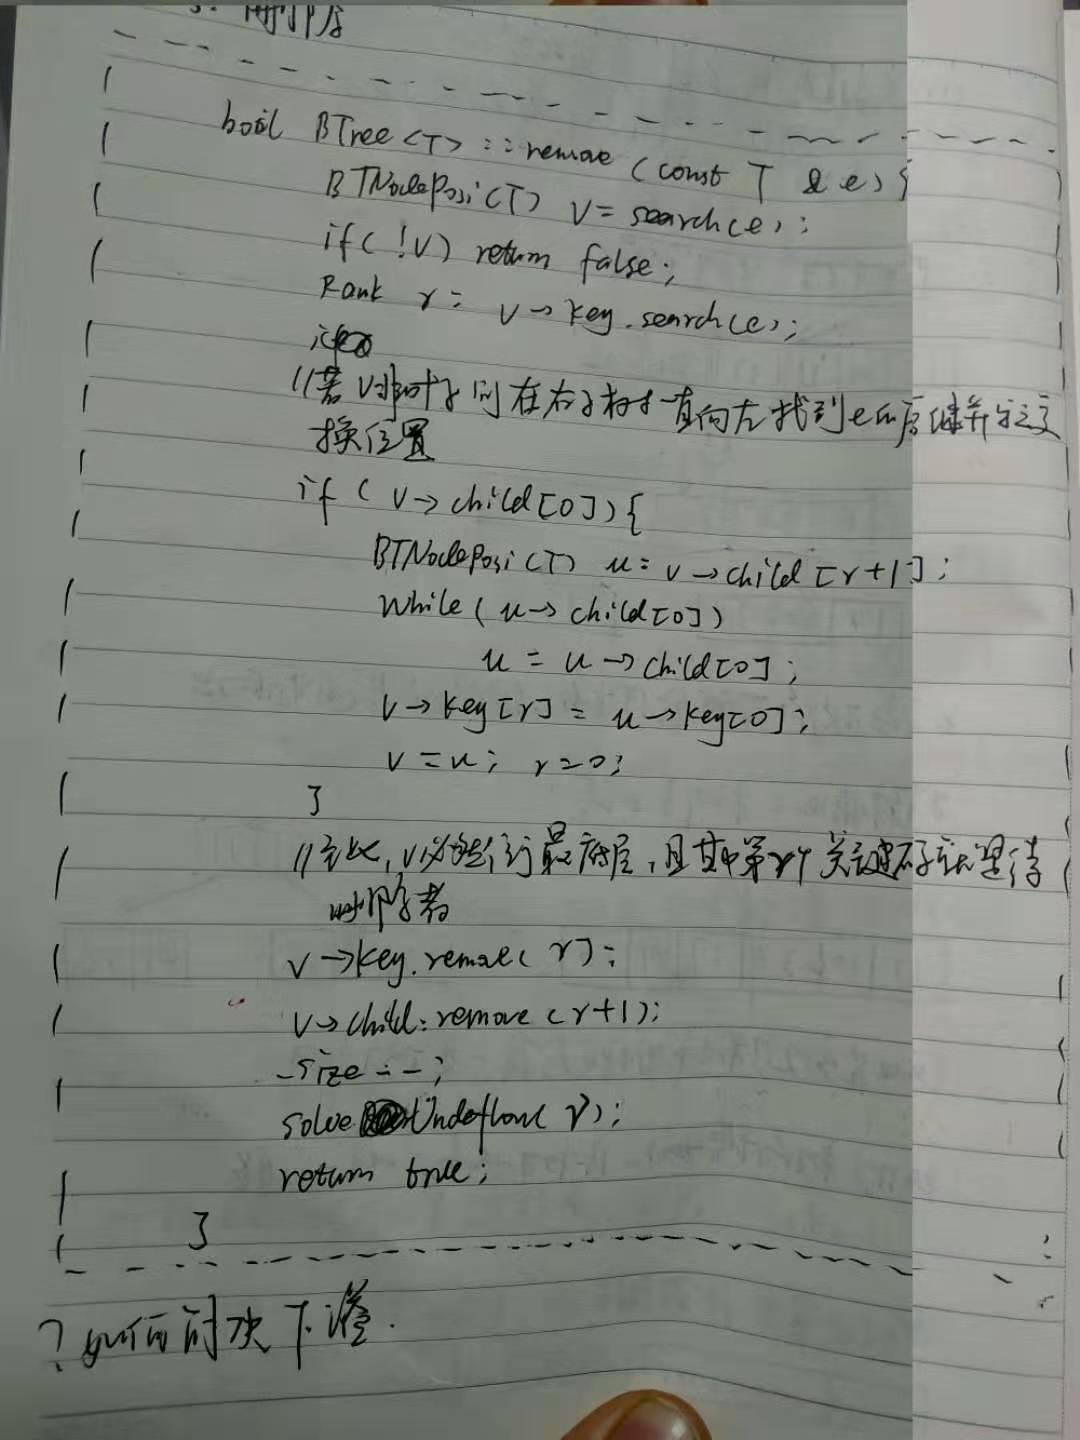 3. 删除
bool BTree<T> :: remove (const T & e) {
BTNodePosi(T) v = search(e);
if( !v) return false;
Rank r = v -> key.search(e);
//若v非叶子则在右子树一直向左找到e的后继并与之交
换位置
if ( v -> child [0]) {
BTNodePosi (T) u = v -> child [r+1];
while ( u -> child[0])
u = u -> child[0];
v -> key[r] = u -> key[0];
v = u; r = 0;
}
//至此, v必然位于最底层, 且其中第r个关键码就是待
删除者
v -> key.remove( r);
v -> child.remove (r+1);
_size --;
solveUndeflow( v);
return true;
}
? 如何解决下溢.